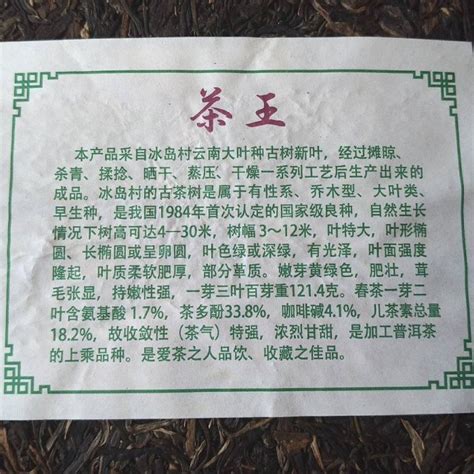 茶王
本产品采自冰岛村云南大叶种古树新叶，经过摊晾、
杀青、揉捻、晒干、蒸压、干燥一系列工艺后生产出来的
成品。冰岛村的古茶树是属于有性系、乔木型、大叶类、
早生种，是我国1984年首次认定的国家级良种，自然生长
情况下树高可达4—30米，树幅3～12米，叶特大，叶形椭
圆、长椭圆或呈卵圆，叶色绿或深绿，有光泽，叶面强度
隆起，叶质柔软肥厚，部分革质。嫩芽黄绿色，肥壮，茸
毛张显，持嫩性强，一芽三叶百芽重121.4克。春茶一芽二
叶含氨基酸1.7%，茶多酚33.8%，咖啡碱4.1%，儿茶素总量
18.2%，故收敛性（茶气）特强，浓烈甘甜，是加工普洱茶
的上乘品种。是爱茶之人品饮、收藏之佳品。